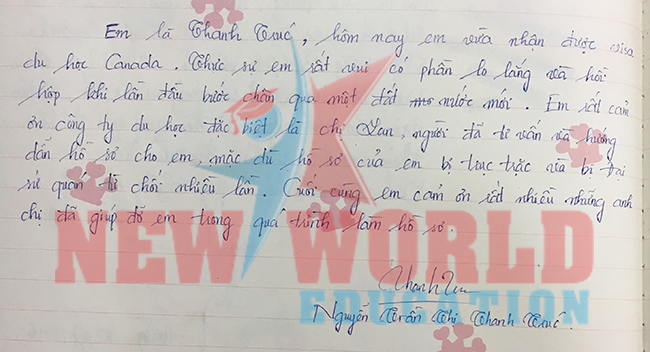 Em là Thanh Trúc, hôm nay em vừa nhận được visa
du học Canada. Thực sự em rất vui có phần lo lắng và hồi
hộp khi lần đầu bước chân qua một đất mo nước mới. Em rất cảm
ơn công ty du học đặc biệt là chị Lan, người đã tư vấn và hướng
dẫn hồ sơ cho em, mặc dù hồ sơ của em bị trục trặc và bị đại
sứ quán từ chối nhiều lần. Cuối cùng em cảm ơn rất nhiều những anh
chị đã giúp đỡ em trong quá trình làm hồ sơ.
NEW WORLD
EDUCATION
Nguyễn Trần Thị Thanh Trúc.